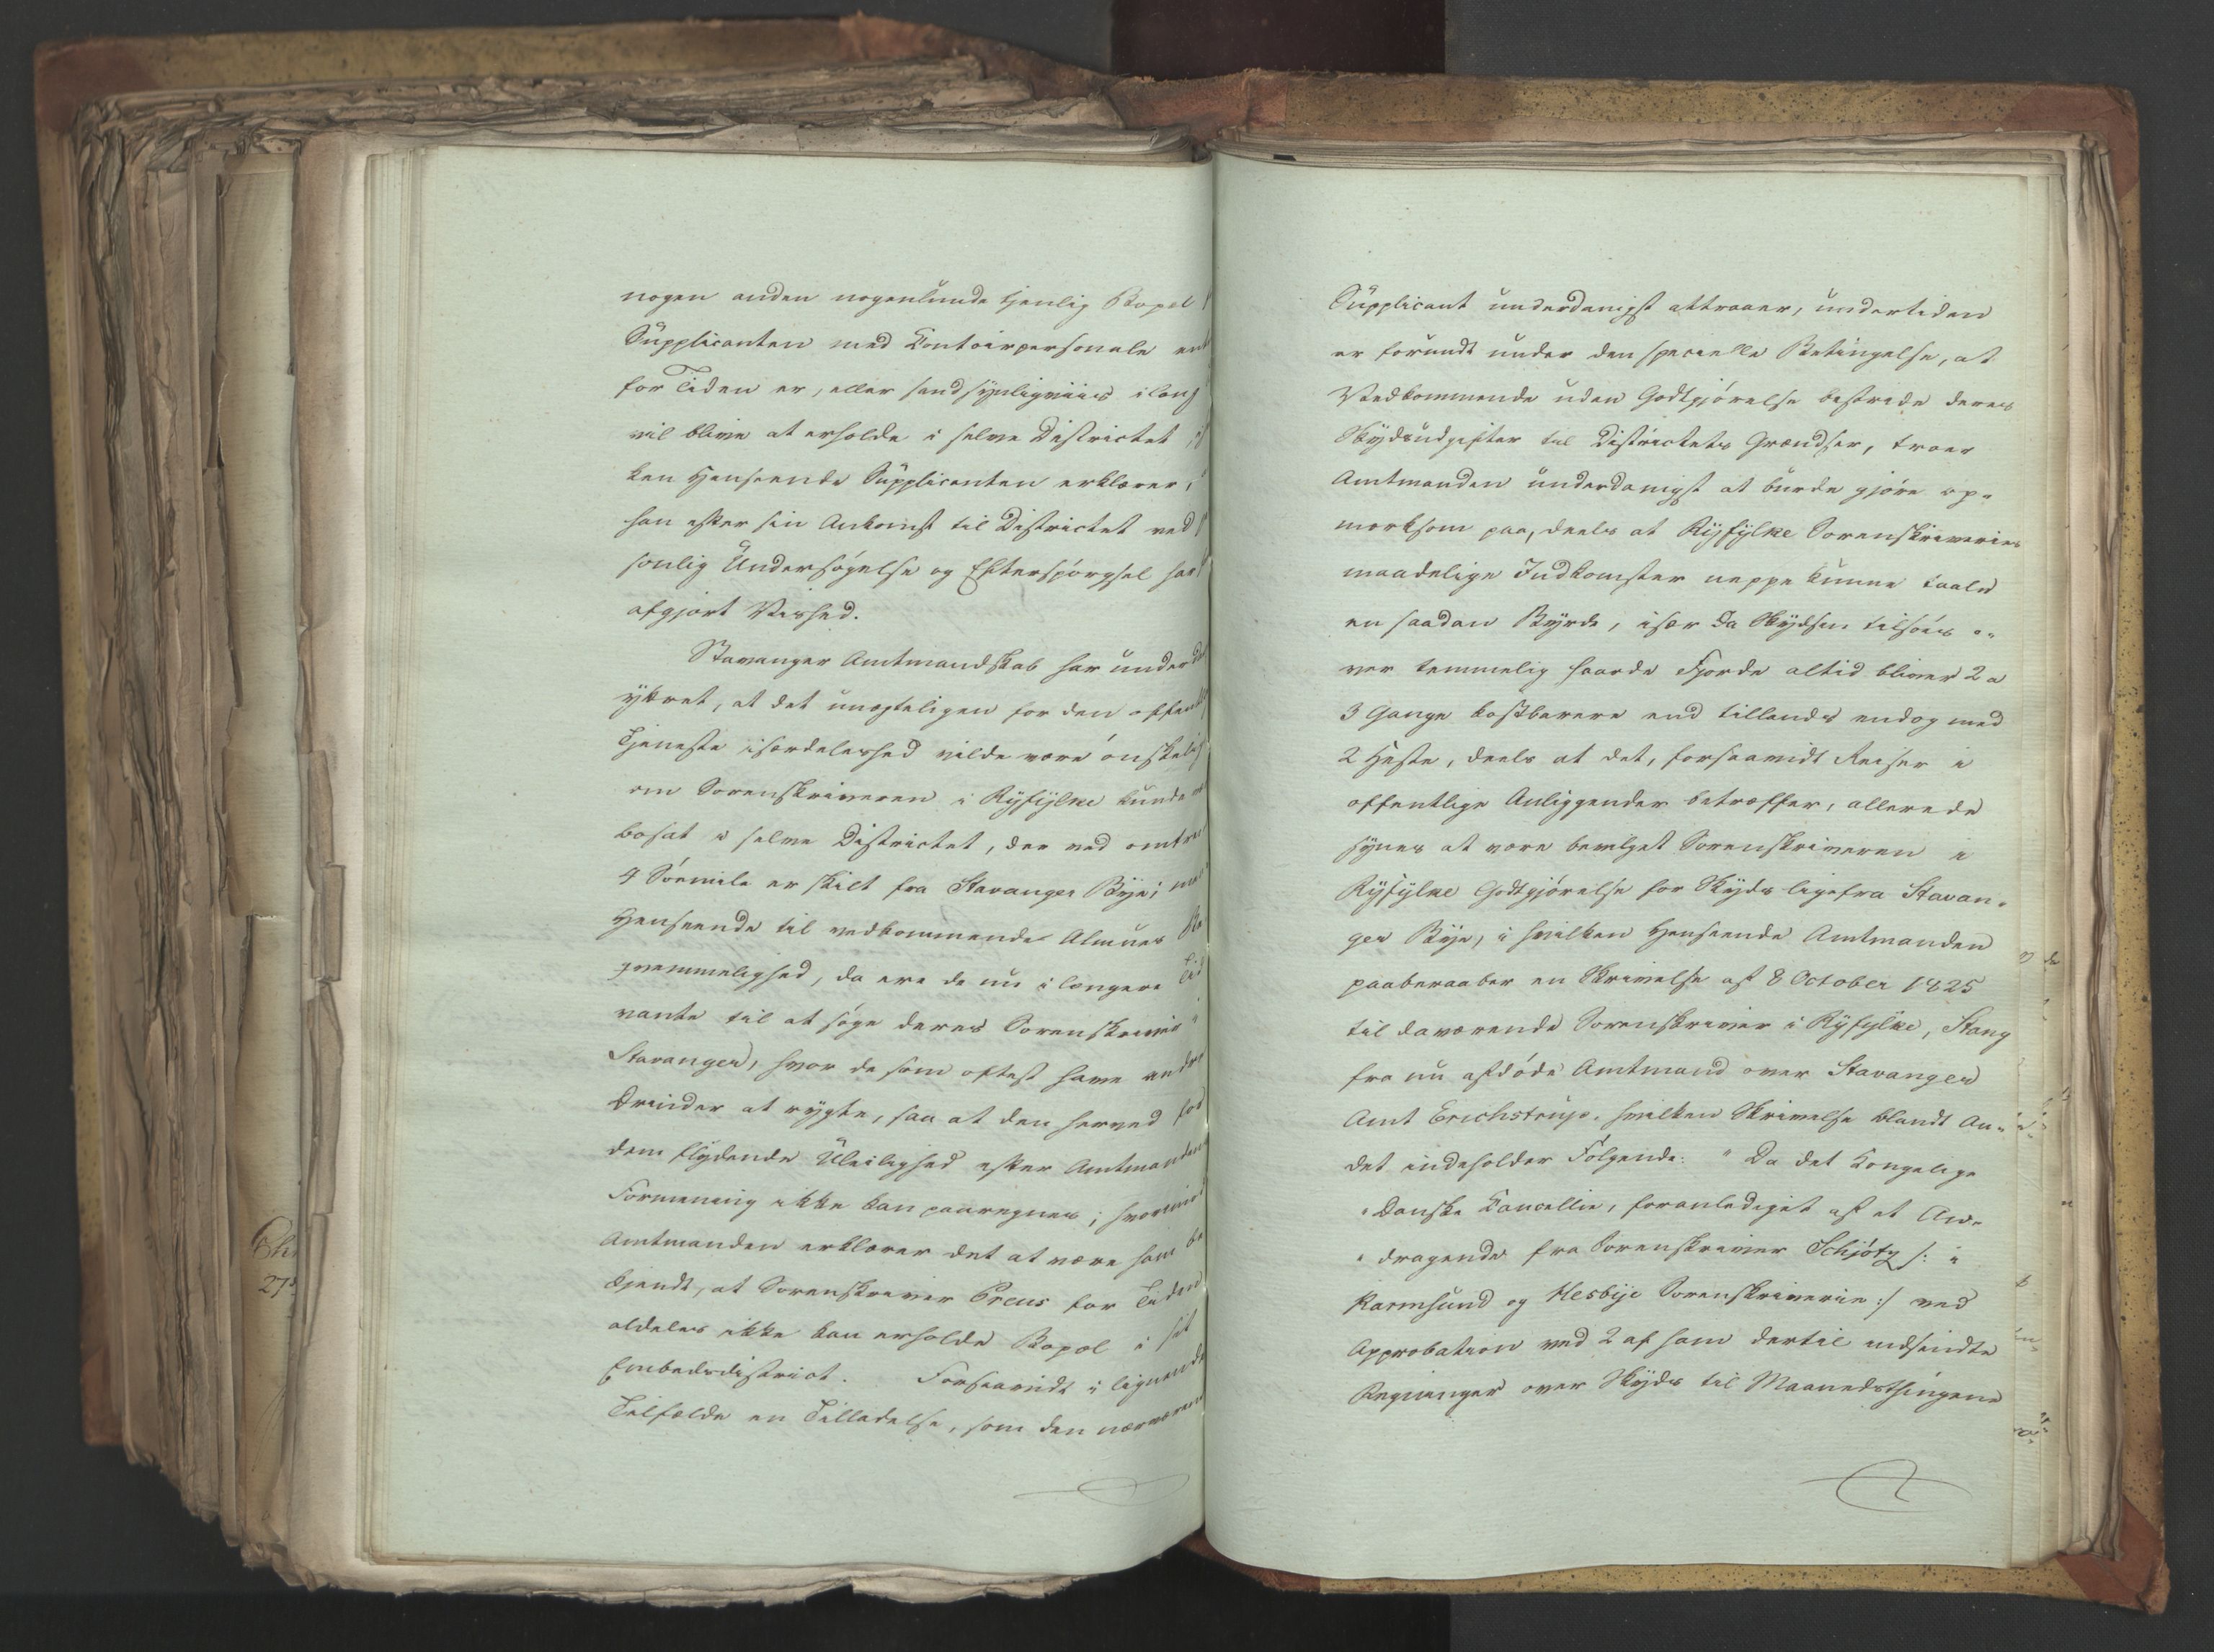 nogen anden nogenlunde tjenlig Bopel
Supplicanten med Contoirpersonale
for Tiden er, eller sandsynligviis i
vil blive at erholde i selve Districtet
ken Henseende Supplicanten erklærer,
han efter sin Ankomst til Districtet ved
sonlig Undersøgelse og Efterspørgsel har
afgjort Vished.
Stavanger Amtmandskab har under
yttret, at det unægteligen for den
Tjeneste isærdeleshed vilde være ønskelig
om Sorenskriveren i Ryfylke kunde
bosat i selve Districtet, der ved
4 Søemile er skilt fra Stavanger Bye;
Henseende til vedkommende Almues Be
qvemmelighed, da ere de nu i længere Tid
vante til at søge deres Sorenskriver i
Stavanger, hvor de som oftest have andre
Ærinder at rygte, saa at den herved for
dem flydende Uleilighed efter Amtmanden
Formening ikke kan paaregnes;
Amtmanden erklærer det at være ham be
kjendt, at Sorenskriver Preus for Tiden
aldeles ikke kan erholde Bopæl i sit
Embedsdistrict. Forsaavidt i lignende
Tilfælde en Tilladelse, som den
Supplicant underdanigst attraaer, undertiden
er forundt under den specielle Betingelse, at
Vedkommende uden Godtgjørelse bestride deres
Skydsudgifter til Districtets Grændser, troer
Amtmanden underdanigst at burde gjøre op-
mærksom paa, deels at Ryfylke Sorenskriveries
maadelige Indkomster neppe kunne taale
en saadan Byrde, især da Skydsen tilsøes o-
ver temmelig haarde Fjorde altid bliver 2 a
3 Gange kostbarere end tillands endog med
2 Heste, deels at det, forsaavidt Reiser i
offentlige Anliggender betræffer, allerede
synes at være bevilget Sorenskriveren i
Ryfylke Godtgjørelse for Skyds ligefra Stavan-
ger Bye, i hvilken Henseende Amtmanden
paaberaaber en Skrivelse af 8 October 1825
til daværende Sorenskriver i Ryfylke, Stang
fra nu afdøde Amtmand over Stavanger
Amt Erichstrup, hvilken Skrivelse blandt An-
det indeholder Følgende: " Da det Kongelige
" Danske Cancellie, foranlediget af et An-
" dragende fra Sorenskriver Schiøtz /: i
Karmsund og Hesbye Sorenskriverie :/ ved
Approbation ved 2 af ham dertil indsendte
Regninger over Skyds til Maanedsthingene